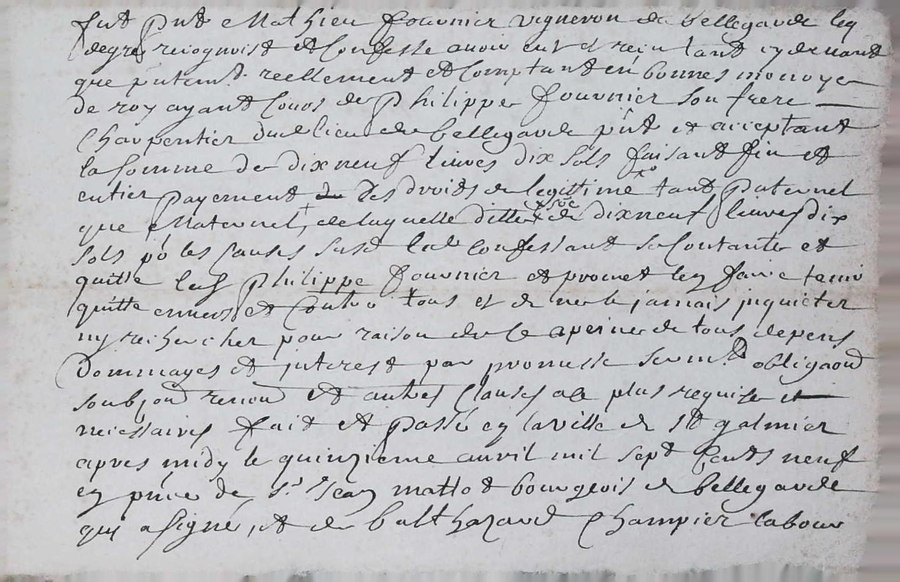 fut pnt Mathieu fournier vigneron de bellegarde leq
degre recognoist et Confesse avoir eut et receu tant cy devant
que putemt. reellement et Comptant en bonnes monoye
de roy ayant Cours de Philippe fournier son frere
Charpentier dud lieu de bellegarde pnt et acceptant
la somme de dix neuf livres dix sols faisant fin et
entier payement des droits de legittime tant Paternel
que Maternel, de laquelle ditte soe de dixneuf livres dix
sols po les causes susd led confessant se Contante et
quitte led Philippe fournier et promet leq faire tenir
quitte envers et Contre tous et de ne le jamais jnquieter
ny rechercher pour raison de ce a peine de tous depens
Dommages et jnterest par promesse serm.t obligaon
soubjon renon et autres Clauses a ce plus requise et
necessaires fait et Passé en la ville de St galmier
apres midy le quinzieme avril mil sept Cents neuf
en pnce de Sr Jean mattot bourgeois de bellegarde
qui a signé, et de balthazard Champier labour